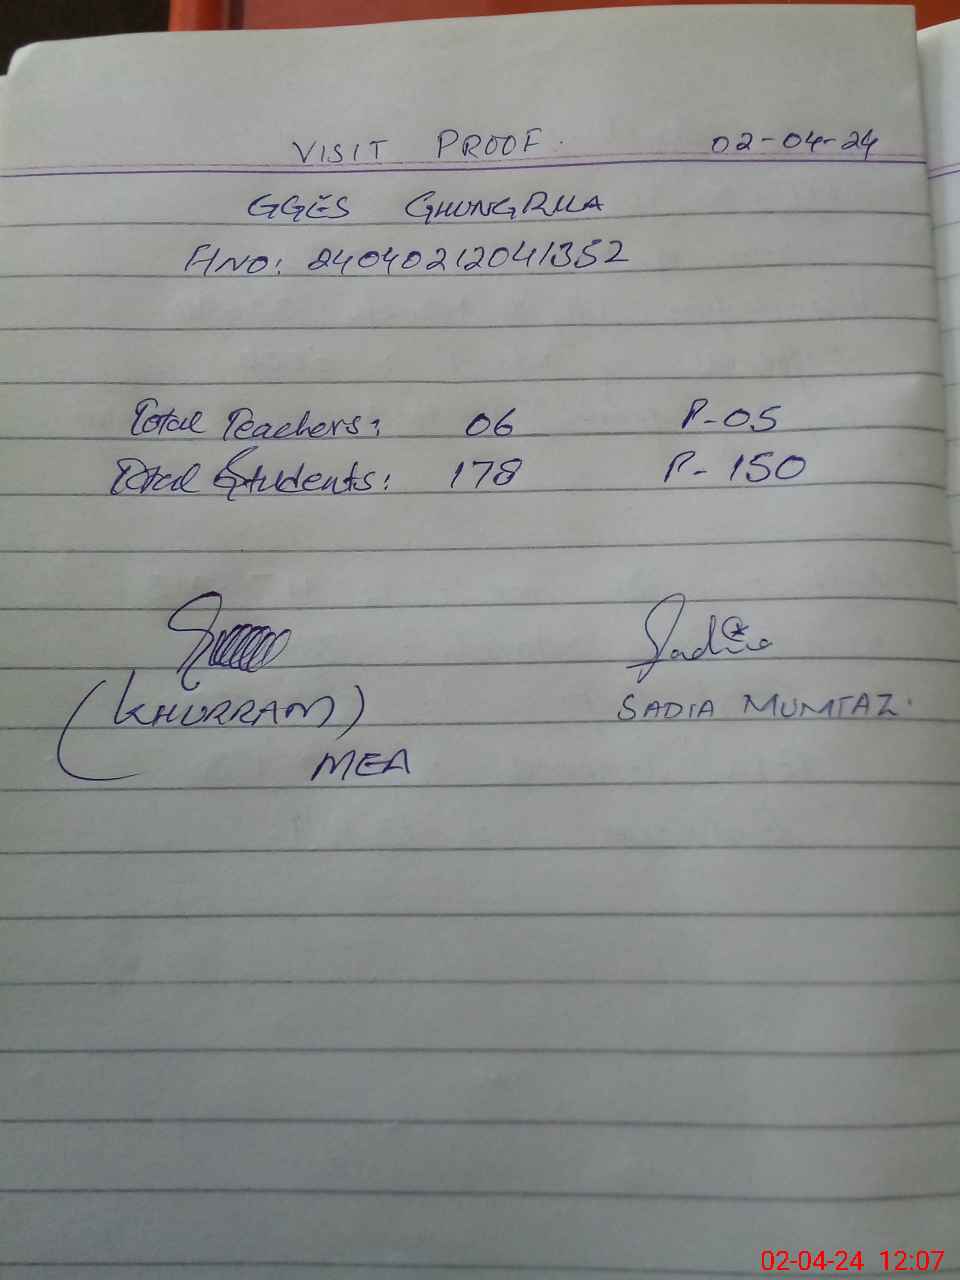 VISIT PROOF. 02-04-24
GGES GHUNGRILA
FINO: 24040212041352
Total Teachers: 06 P-05
Total Students: 178 P-150
Sadia
(KHURRAM) SADIA MUMTAZ.
MEA
02-04-24 12:07